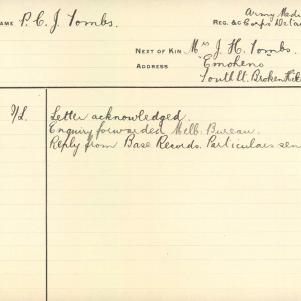 NAME P. C. J. Tombs.
Army Medi
REG. &c Corps Details
NEXT OF KIN Mrs J. H. Tombs.
ADDRESS "Emoheno"
South St. Broken Hill
7/L. Letter acknowledged.
Enquiry forwarded Melb. Bureau.
Reply from Base Records. Particulars sen